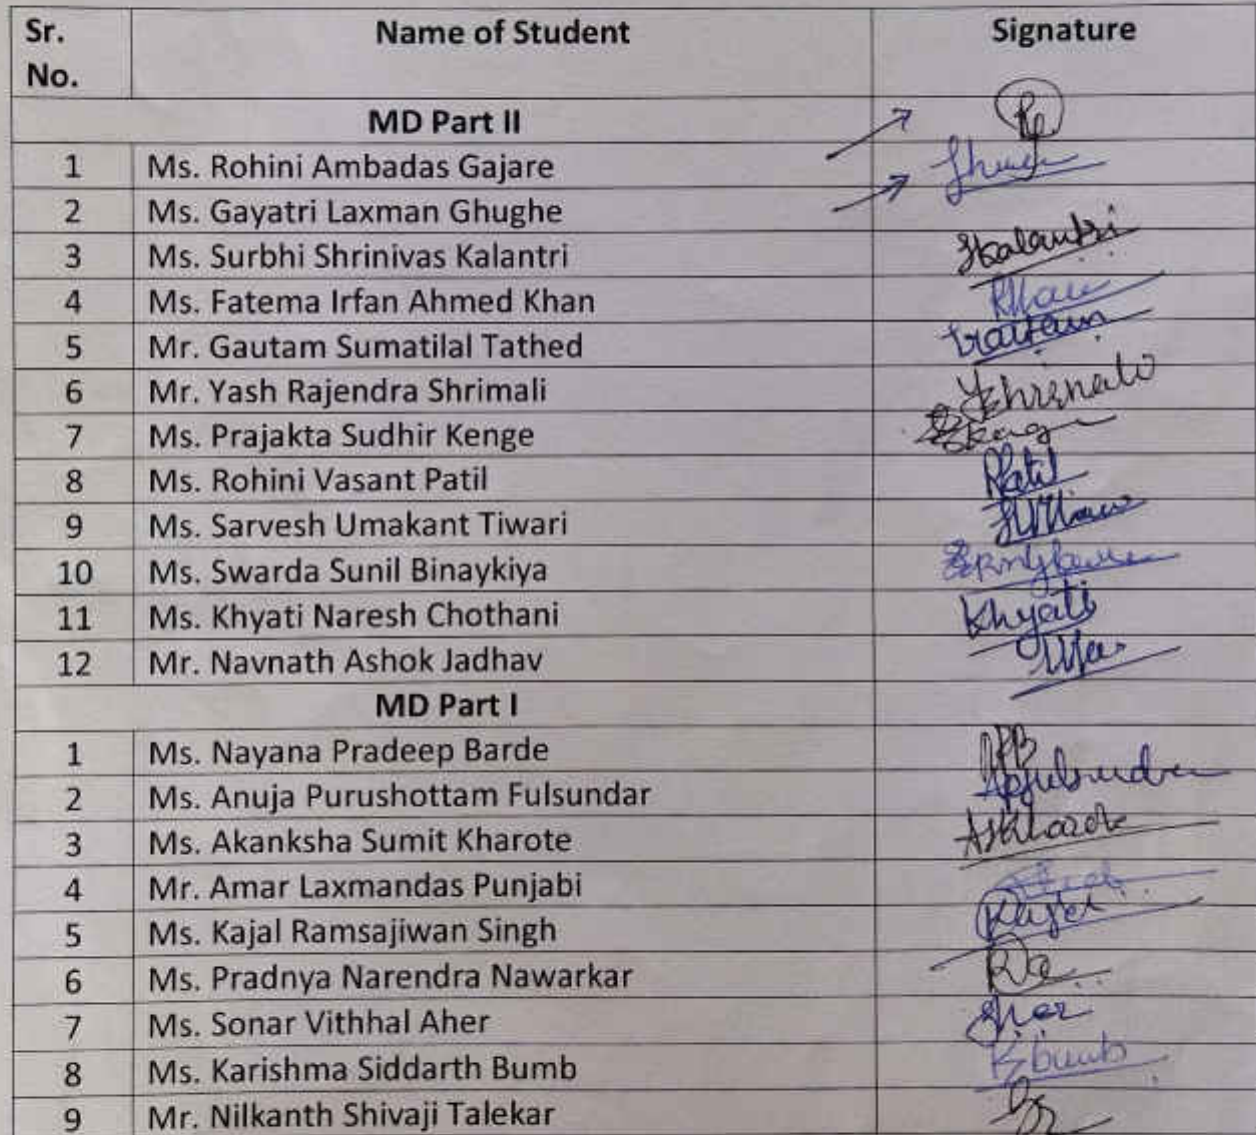 Sr. No. Name of Student Signature
MD Part II
1 Ms. Rohini Ambadas Gajare
2 Ms. Gayatri Laxman Ghughe
3 Ms. Surbhi Shrinivas Kalantri Skalantri
4 Ms. Fatema Irfan Ahmed Khan
5 Mr. Gautam Sumatilal Tathed Gautam
6 Mr. Yash Rajendra Shrimali
7 Ms. Prajakta Sudhir Kenge
8 Ms. Rohini Vasant Patil RPatil
9 Ms. Sarvesh Umakant Tiwari
10 Ms. Swarda Sunil Binaykiya
11 Ms. Khyati Naresh Chothani Khyati
12 Mr. Navnath Ashok Jadhav
MD Part I
1 Ms. Nayana Pradeep Barde
2 Ms. Anuja Purushottam Fulsundar
3 Ms. Akanksha Sumit Kharote
4 Mr. Amar Laxmandas Punjabi
5 Ms. Kajal Ramsajiwan Singh
6 Ms. Pradnya Narendra Nawarkar
7 Ms. Sonar Vithhal Aher
8 Ms. Karishma Siddarth Bumb
9 Mr. Nilkanth Shivaji Talekar